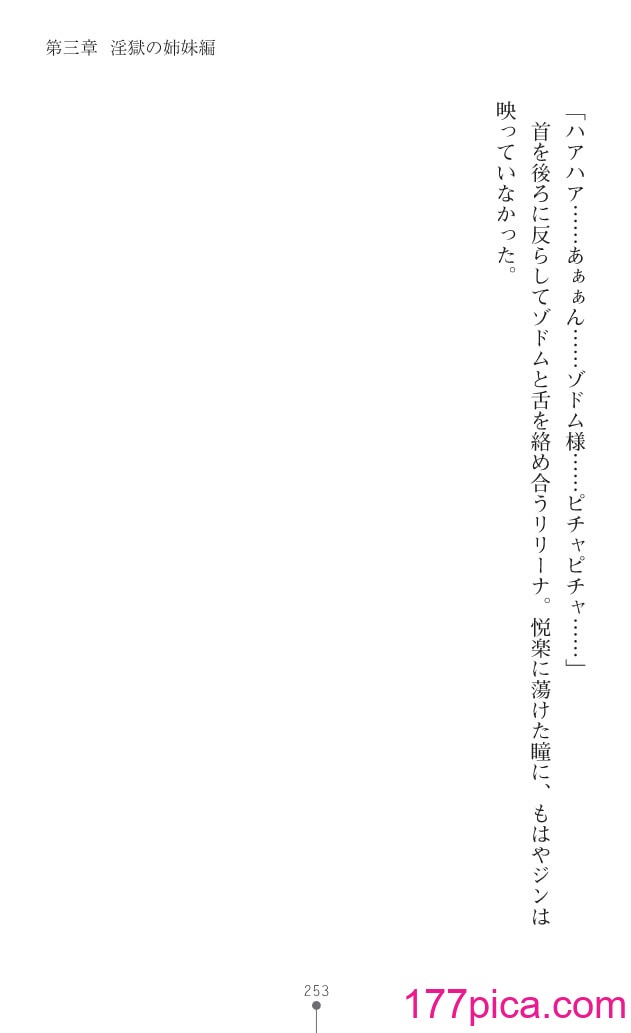 第三章 淫獄の姉妹編
「ハアハア……あぁぁん……ゾドム様……ピチャピチャ……」
首を後ろに反らしてゾドムと舌を絡め合うリリーナ。悦楽に蕩けた瞳に、もはやジンは
映っていなかった。
253
177pica.com